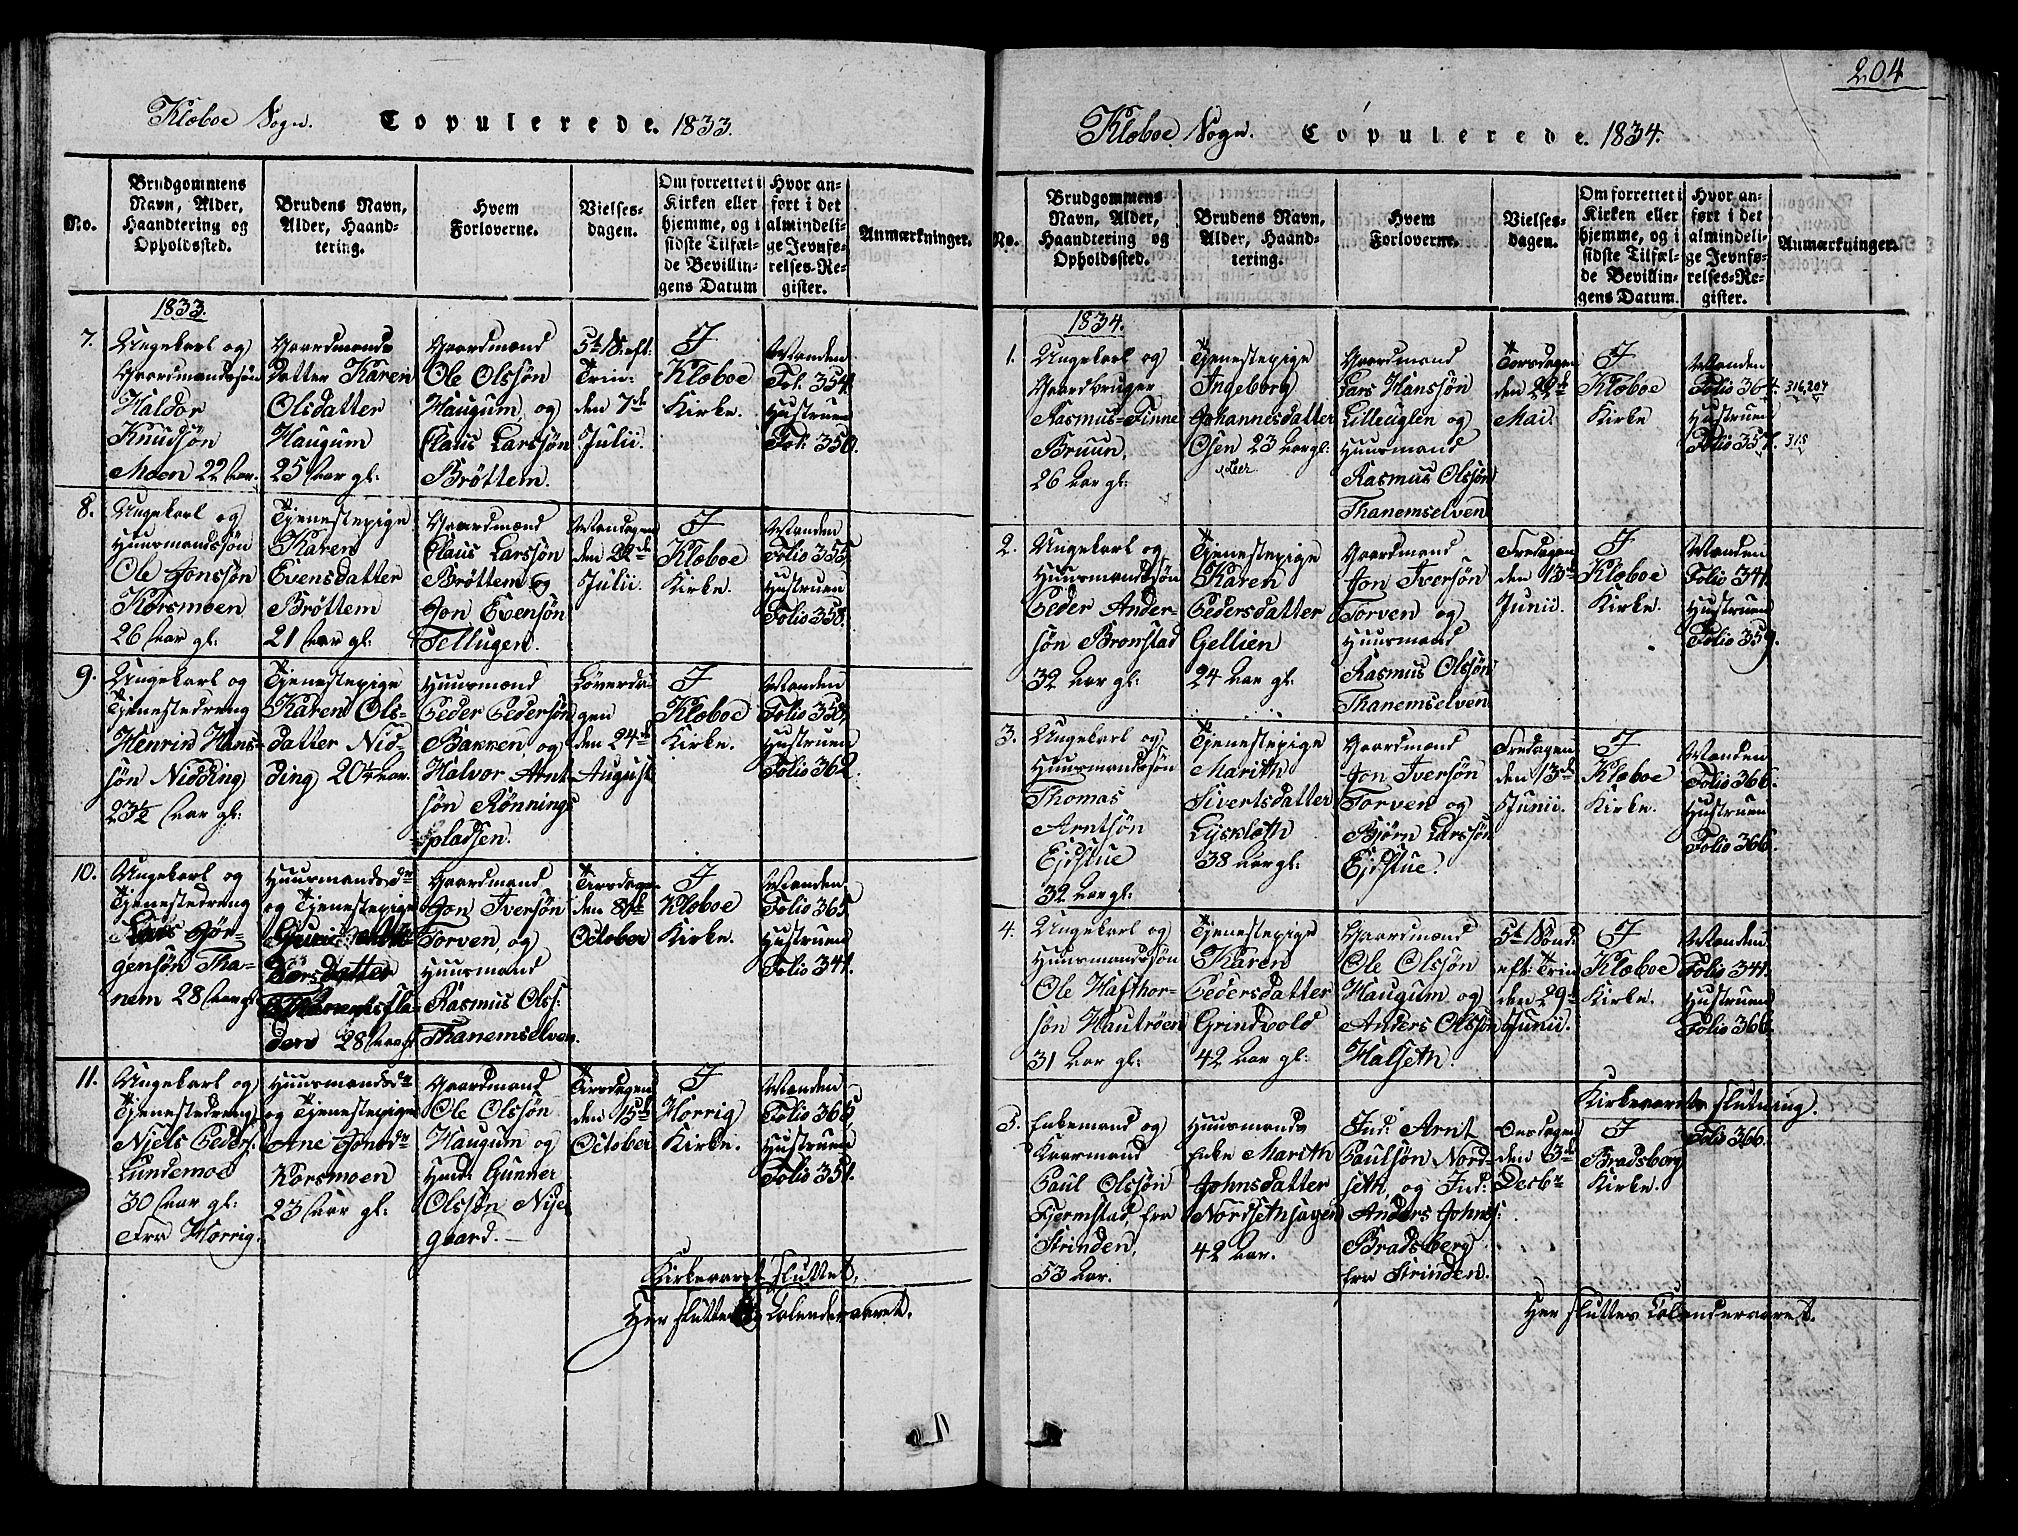 Klæboe Sogn. Copulerede. 1833.
No.
Brudgommens
Navn, Alder,
Haandtering og
Opholdssted.
Brudens Navn,
Alder, Haand-
tering.
Hvem
Forloverne.
Vielses-
dagen.
Om forrettet i
Kirken eller
hjemme, og i
sidste Tilfæl-
de Bevillin-
gens Datum
Hvor an-
ført i det
almindeli-
ge Jevnfø-
relses-Re-
gister.
Anmærkninger.
1833.
7.
Ungekarl og
Gaardmandssøn
Haldor
Knudsøn
Moen 22 Aar.
Gaardmands
datter Karen
Olsdatter
Haugum
25 Aar gl:
Gaardmænd
Ole Olssøn
Haugum og
Claus Larssøn
Brøttem.
5te S. eft:
Trin:
den 7de
Julii.
I
Klæboe
Kirke.
Manden
Fol: 354.
Hustruen
Fol: 350.
8.
Ungekarl og
Huusmandssøn
Ole Jonssøn
Korsmoen
26 Aar gl:
Tjenestepige
Karen
Evensdatter
Brøttem
21 Aar gl:
Gaardmænd
Claus Larssøn
Brøttem og
Jon Evensøn
Tellugen.
Mandagen
den 22de
Julii.
I
Klæboe
Kirke.
Manden
Folio 355.
Hustruen
Folio 358.
9.
Ungekarl og
Tjenestedreng
Henrik Hans-
søn Nidding
23½ Aar gl:
Tjenestepige
Karen Ols-
datter Nid-
ding 20¼ Aar.
Huusmænd
Peder Pedersøn
Bakken og
Halvor Arnt
søn Rønnings
pladsen.
Løverda-
gen
den 24de
August
I
Klæboe
Kirke.
Manden
Folio 358.
Hustruen
Folio 362.
10.
Ungekarl og
Tjenestedreng
Lars Jør-
gensøn Tha-
nem 28 Aar gl:
Huusmandsdr
og Tjenestepige
28 Aar gl
Gaardmand
Jon Iversøn
Torven og
Huusmand
Rasmus Ols:
Thanemselven.
Tirsdagen
den 8de
October
I
Klæboe
Kirke.
Manden
Folio 365
Hustruen
Folio 341.
11.
Ungekarl og
Tjenestedreng
Niels Peders:
Lundemoe
30 Aar gl:
Fra Horrig.
Huusmandsdr
og Tjenestepige
Ane Jonsdr
Korsmoen
23 Aar gl:
Gaardmand
Ole Olssøn
Haugum og
Gunner
Olssøn Nye
gaard.
Tirsdagen
den 15de
October
I
Horrig
Kirke.
Manden
Folio 365
Hustruen
Folio 351.
Kirkeaaret sluttet.
Her sluttes Calenderaaret.
204
Klæboe Sogn. Copulerede. 1834.
No.
Brudgommens
Navn, Alder,
Haandtering og
Opholdssted.
Brudens Navn,
Alder, Haand-
tering.
Hvem
Forloverne.
Vielses-
dagen.
Om forrettet i
Kirken eller
hjemme, og i
sidste Tilfæl-
de Bevillin-
gens Datum.
Hvor an-
ført i det
almindeli-
ge Jevnfø-
relses-Re-
gister.
Anmærkninger.
1834.
1.
Ungekarl og
Gaardbruger
Rasmus Finne
Bruun,
26 Aar gl:
Tjenestepige
Ingeborg
Johannesdatter
Osen 23 Aar gl:
Gaardmand
Lars Hanssøn
Lilleuglen og
Huusmand
Rasmus Olssøn
Thanemselven
Torsdagen
den 22de
Mai.
I
Klæboe
Kirke
Manden
Folio 364.
Hustruen
Folio 357.
316, 207
315
2.
Ungekarl og
Huusmandssøn
Peder Ander-
søn Bromstad
32 Aar gl:
Tjenestepige
Karen
Pedersdatter
Gellien
24 Aar gl:
Gaardmand
Jon Iversøn
Torven og
Huusmand
Rasmus Olssøn
Thanemselven
Fredagen
den 13de
Junii.
I
Klæboe
Kirke.
Manden
Folio 341.
Hustruen
Folio 359.
3.
Ungekarl og
Huusmandssøn
Thomas
Arntsøn
Ejdstue
32 Aar gl:
Tjenestepige
Marith
Sivertsdatter
Lysklæth
38 Aar gl:
Gaardmand
Jon Iversøn
Torven og
Bjørn Larssøn
Ejdstue.
Fredagen
den 13de
Junii.
I
Klæboe
Kirke.
Manden
Folio 366.
Hustruen
Folio 366.
4.
Ungekarl og
Huusmandssøn
Ole Hafthor-
søn Hautrøen
31 Aar gl:
Tjenestepige
Karen
Pedersdatter
Grindvold
42 Aar gl:
Gaardmænd
Ole Olssøn
Haugum og
Anders Olssøn
Halseth.
5te Sønd:
eft: Trin:
den 29de
Junii.
I
Klæboe
Kirke.
Manden
Folio 341.
Hustruen
Folio 366.
Kirkeaarets slutning.
5.
Enkemand og
Kaarmand
Paul Olssøn
Fjermstad fra
Strinden,
53 Aar.
Huusmands
Enke Marith
Johnsdatter
Nordsethsagen
42 Aar.
Ind: Arnt
Paulsøn Nord-
seth og Ind:
Anders Johns:
Bradsberg
fra Strinden.
Onsdagen
den 3de
Decbr
I
Bradsberg
Kirke.
Folio 366.
Her sluttes Calenderaaret.